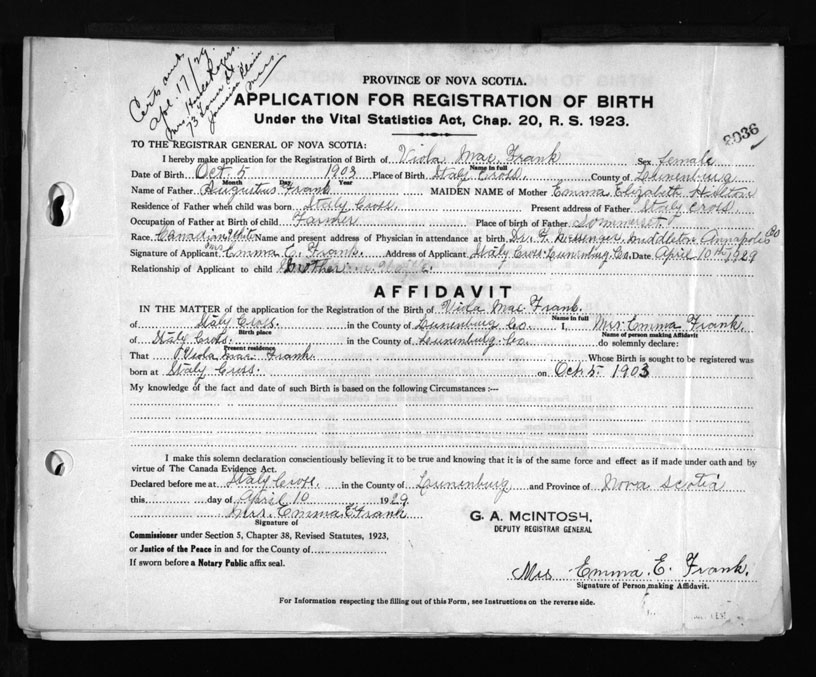 Certs and
Apl. 17/29
Mrs
73
Jamaica Plain
Mass.
PROVINCE OF NOVA SCOTIA.
APPLICATION FOR REGISTRATION OF BIRTH
Under the Vital Statistics Act, Chap. 20, R. S. 1923.
3036
TO THE REGISTRAR GENERAL OF NOVA SCOTIA:
I hereby make application for the Registration of Birth of Viola Mae Frank Sex female
Name in full
Date of Birth Oct 5 1903 Place of Birth Staly Cross. County of Lunenburg
Month Day Year
Name of Father Augustus Frank MAIDEN NAME of Mother Emma Elizabeth
Residence of Father when child was born Staly Cross. Present address of Father Staly Cross
Occupation of Father at Birth of child Farmer Place of birth of Father
Race Canadian White Name and present address of Physician in attendance at birth Dr. Middleton Annapolis Co
Signature of Applicant Mrs Emma E. Frank. Address of Applicant Staly Cross Lunenburg Co. Date April 10th 1929
Relationship of Applicant to child Mother
AFFIDAVIT
IN THE MATTER of the application for the Registration of the Birth of Viola Mae Frank.
Name in full
of Staly Cross. in the County of Lunenburg Co. I, Mrs. Emma Frank.
Birth place Name of person making Affidavit
of Staly Cross. in the County of Lunenburg Co. do solemnly declare:
Present residence
That Viola Mae Frank. Whose Birth is sought to be registered was
born at Staly Cross. on Oct 5 1903
My knowledge of the fact and date of such Birth is based on the following Circumstances :—
I make this solemn declaration conscientiously believing it to be true and knowing that it is of the same force and effect as if made under oath and by
virtue of The Canada Evidence Act.
Declared before me at Staly Cross. in the County of Lunenburg and Province of Nova Scotia
this day of April 10 1929
Mrs. Emma E Frank
Signature of
G. A. McINTOSH,
DEPUTY REGISTRAR GENERAL
Commissioner under Section 5, Chapter 38, Revised Statutes, 1923,
or Justice of the Peace in and for the County of
If sworn before a Notary Public affix seal.
Mrs Emma E. Frank.
Signature of Person making Affidavit.
For Information respecting the filling out of this Form, see Instructions on the reverse side.